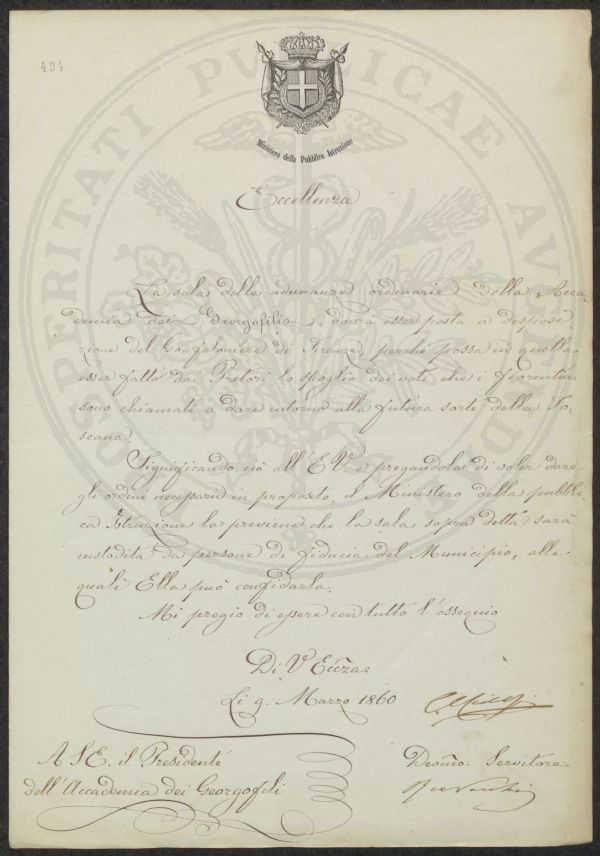 494
PROSPERITATI PUBLICAE AUGENDAE
Ministero della Pubblica Istruzione
Eccellenza
La sala delle adunanze ordinarie della Acca
demia dei Georgofili dovrà esser posta a disposi
zione del Gonfaloniere di Firenze, perché possa in quella
esser fatto dai Pretori lo spoglio dei voti che i fiorentini
sono chiamati a dare intorno alla futura sorte della To
scana.
Significando ciò all'E.V. e pregandola di voler dare
gli ordini necessarii in proposito, il Ministero della pubbli
ca Istruzione la previene che la sala sopra detta sarà
custodita da persone di fiducia del Municipio, alle
quali Ella può confidarla.
Mi pregio di essere con tutto l'ossequio
Di V Eccza
Li 9. Marzo 1860
A S.E. il Presidente
dell'Accademia dei Georgofili
Devmo. Servitore